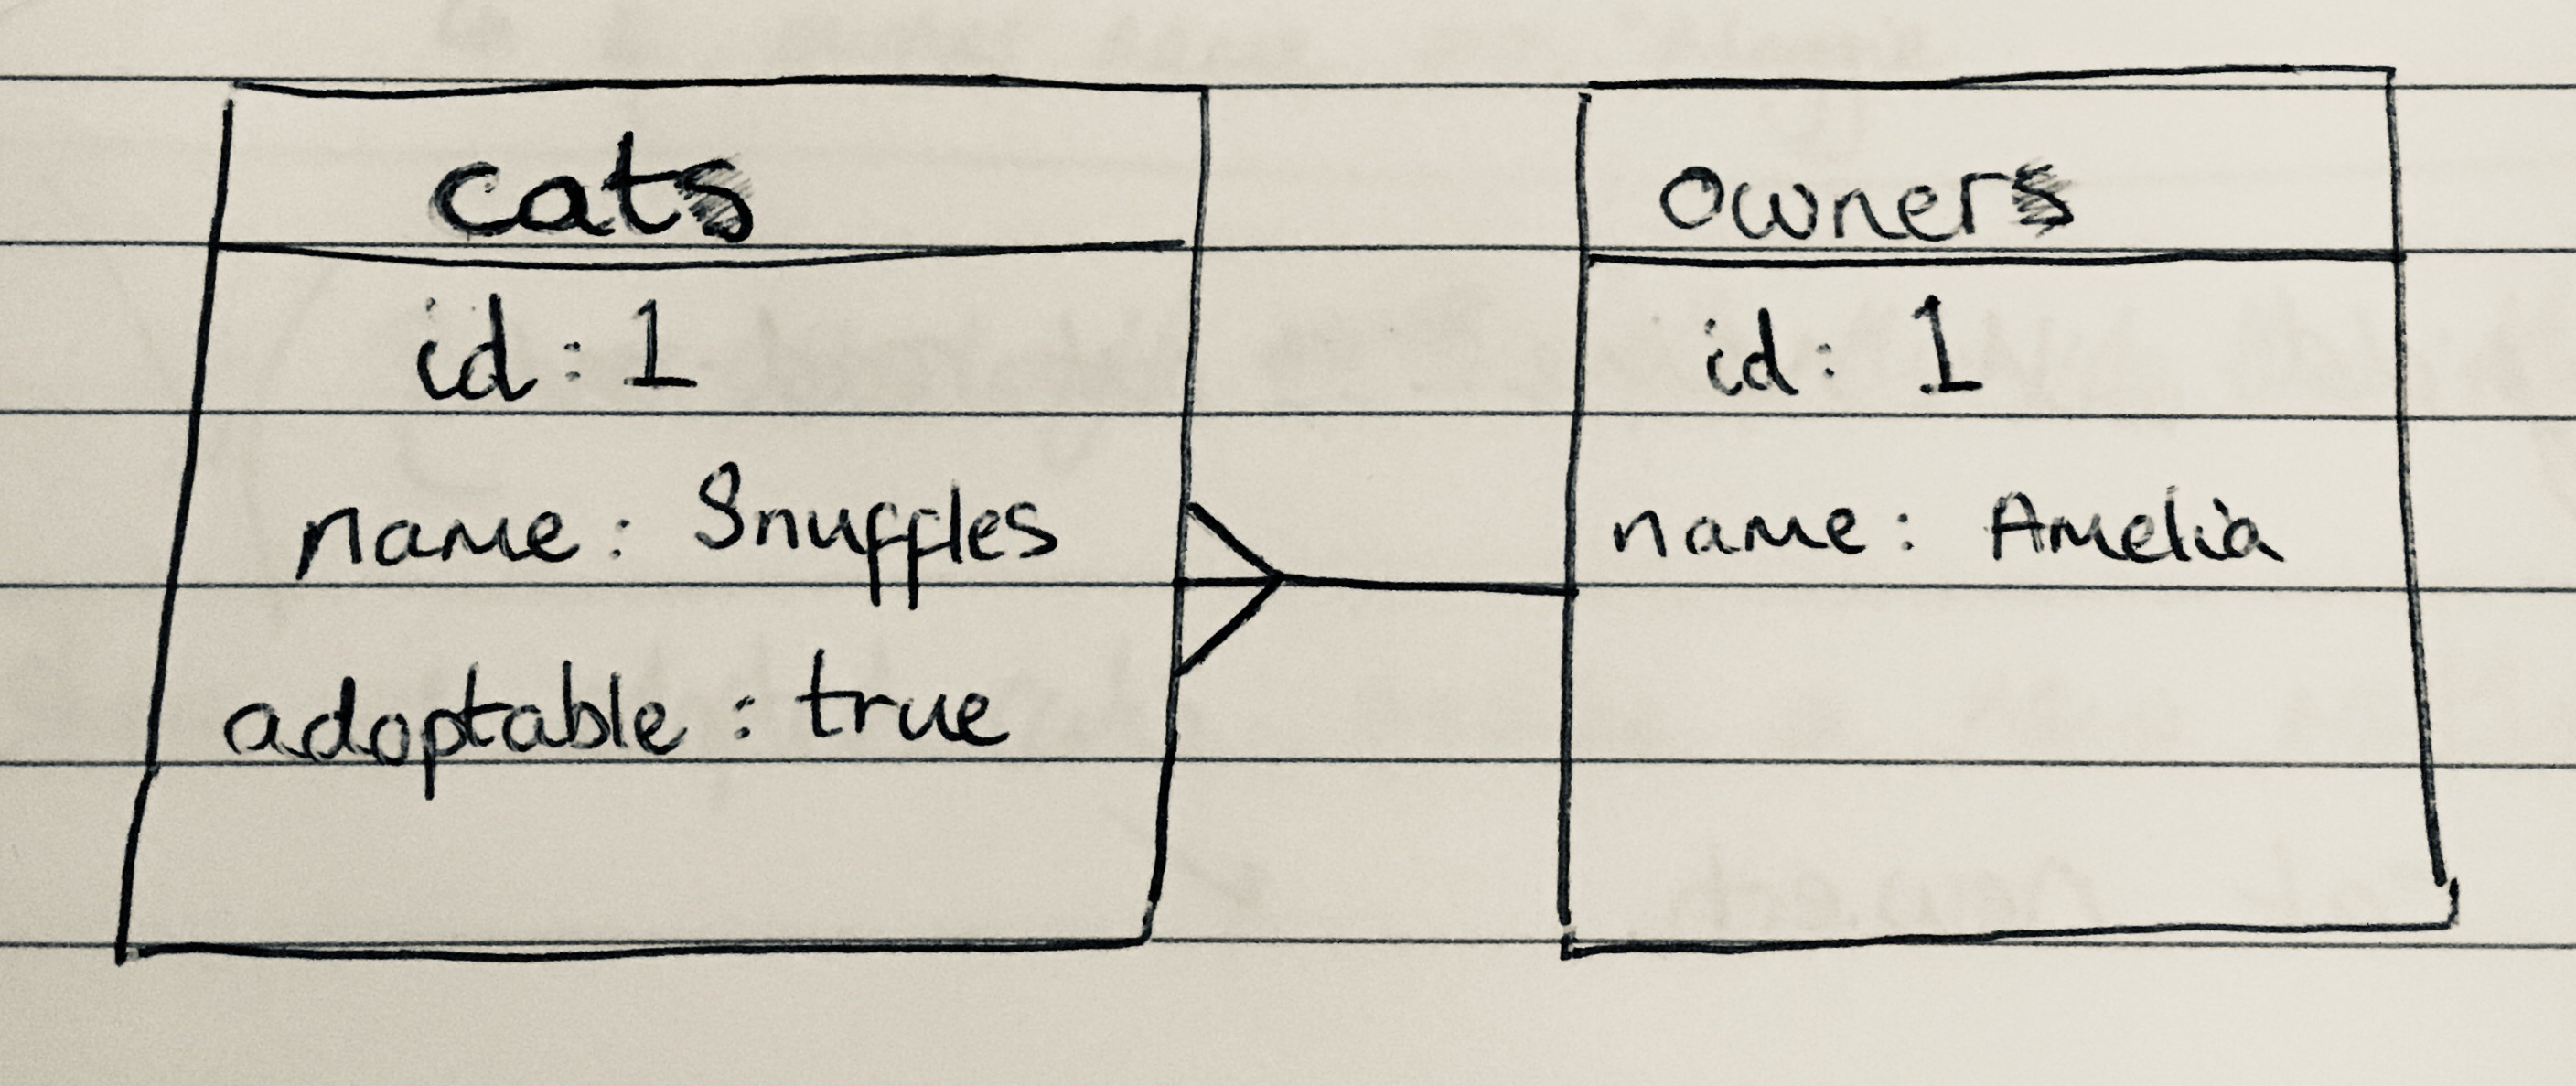 cats
id: 1
name: Snuffles
adoptable: true
owners
id: 1
name: Amelia